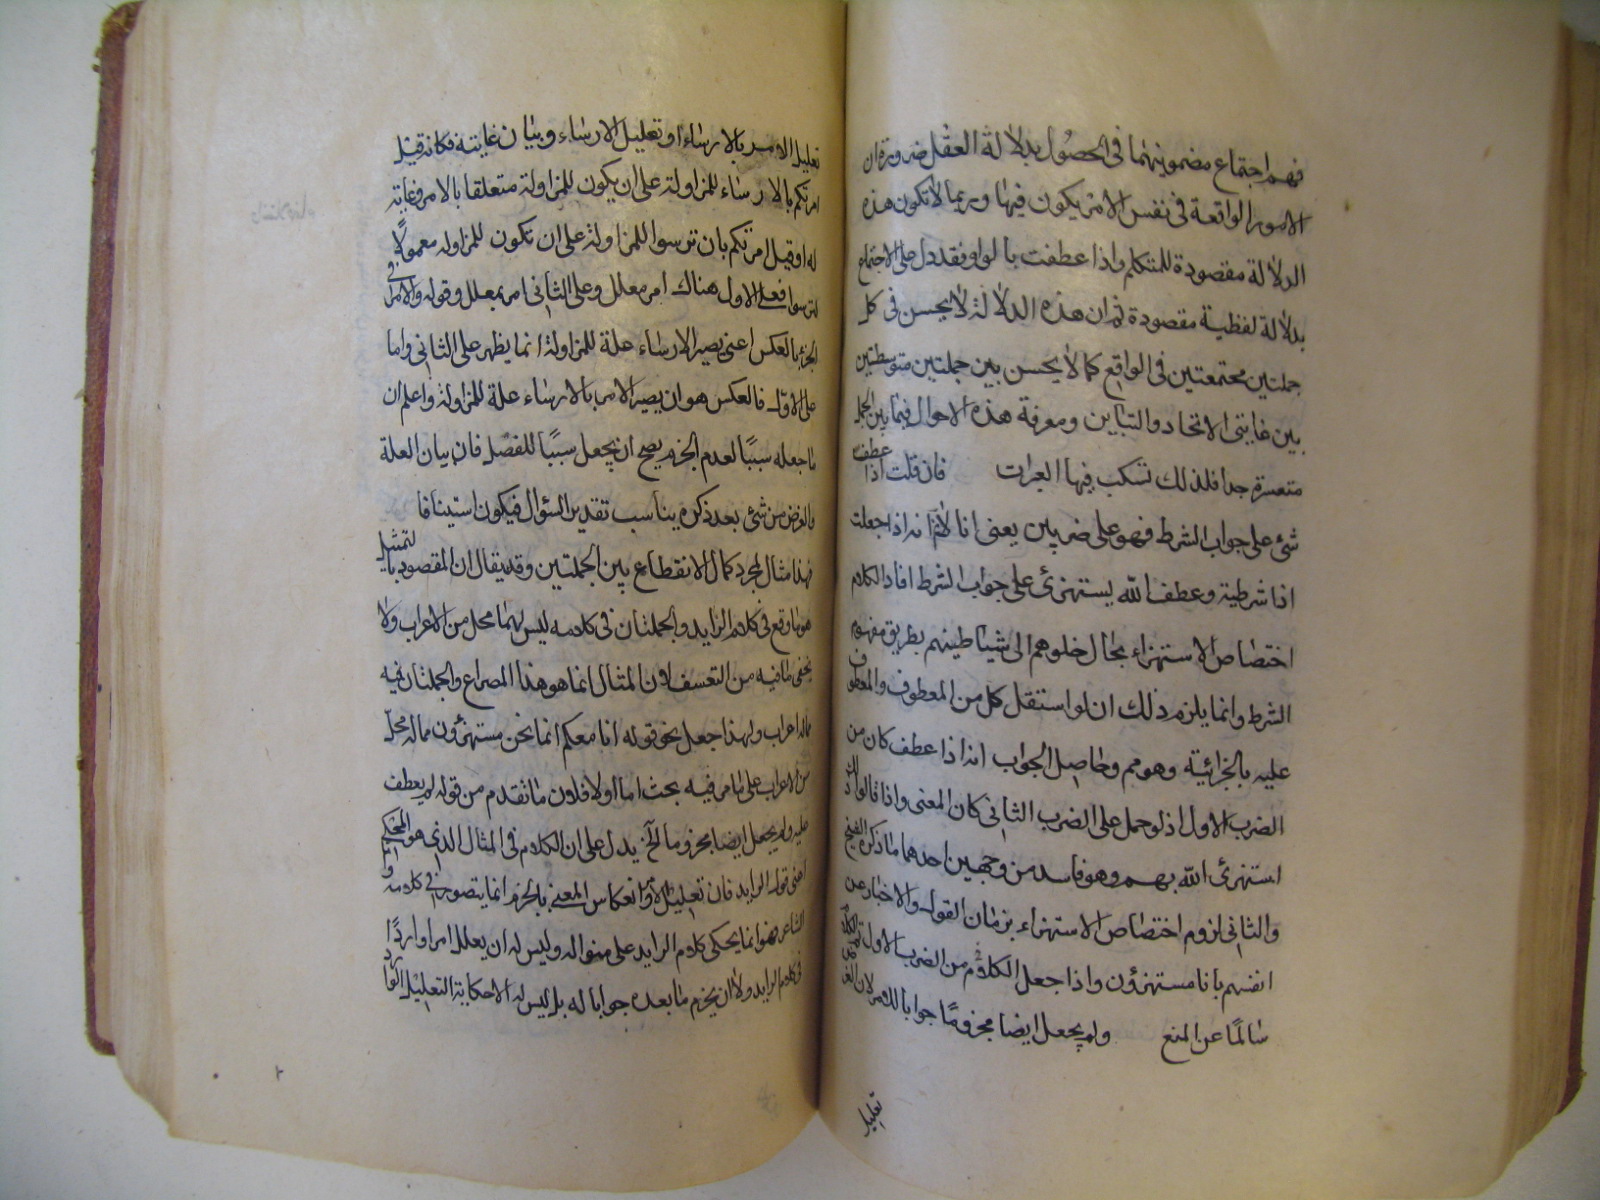 فهم اجتماع مضمونيهما فى الحصول بدلالة العقل ضرورة ان
الامور الواقعة فى نفس الامر يكون فيها وربما لا تكون هذه
الدلالة مقصودة للمتكلم واذا عطفت بالواو فقد دل على الاجتماع
بدلالة لفظية مقصودة ثم ان هذه الدلالة لا يحسن فى كل
جملتين مجتمعتين فى الواقع كما لا يحسن بين جملتين متوسطتين
بين غايتى الاتحاد والتباين ومعرفة هذه الاحوال فيما بين الجمل
متعسرة جدا فلذلك تسكب فيها العبرات فان قلت اذا عطف
شئ على جواب الشرط فهو على ضربين يعنى انا لانم انه اذا جعلت
اذا شرطية وعطف الله يستهزئ على جواب الشرط افاد الكلام
اختصاص الاستهزاء بحال خلوهم الى شياطينهم بطريق مفهوم
الشرط وانما يلزم ذلك ان لو استقل كل من المعطوف والمعطوف
عليه بالجزائية وهو مم وحاصل الجواب انه اذا عطف كان من
الضرب الاول اذ لو حمل على الضرب الثانى كان المعنى واذا قالوا ذلك
استهزئ الله بهم وهو فاسد من وجهين احدهما ما ذكره الشيخ
والثانى لزوم اختصاص الاستهزاء بزمان القول والاخبار عن
انفسهم بانا مستهزؤن واذا جعل الكلام من الضرب الاول
سالما عن المنع ولم يجعل ايضا مجزوما جوابا للامر لان الغرض
تعليل
تعليل الامر بالارساء او تعليل الارساء وبيان غايته فكانه قيل
امرتكم بالارساء للمزاولة على ان يكون للمزاولة متعلقا بالامر وغاية
له او قيل امرتكم بان ترسوا للمزاولة على ان تكون للمزاولة معمولا
لترسوا فعلى الاول هناك امر معلل وعلى الثانى امر بمعلل وقوله والامر فى
الجزم بالعكس اعنى يصير الارساء علة للمزاولة انما يظهر على الثانى واما
على الاول فالعكس هو ان يصير الامر بالارساء علة للمزاولة واعلم ان
ما جعله سببا لعدم الجزم يصح ان يجعل سببا للفصل فان بيان العلة
والغرض من شئ بعد ذكره يناسب تقدير السؤال فيكون استينافا
فهذا مثال لمجرد كمال الانقطاع بين الجملتين وقد يقال ان المقصود بالتمثيل
هو ما وقع فى كلام الرايد والجملتان فى كلامه ليس لهما محل من الاعراب ولا
يخفى ما فيه من التعسف لان المثال انما هو هذا المصراع والجملتان فيه
مماله اعراب ولهذا جعل نحو قوله انا معكم انما نحن مستهزؤن مماله محل
من الاعراب على ما مر فيه بحث اما اولا فلان ما تقدم من قوله لم يعطف
عليه ولم يجعل ايضا مجزوما الخ يدل على ان الكلام فى المثال الذى هو المحكى
اعنى قول الرايد فان تعليل الامر وانعكاس المعنى بالجزم انما يتصور فى كلامه و
الشاعر فهو انما يحكى كلام الرايد على منواله وليس له ان يعلل امرا واردا
فى كلام الرايد ولا ان يجزم ما بعده جوابا له بل ليس له الا حكاية التعليل الوارد